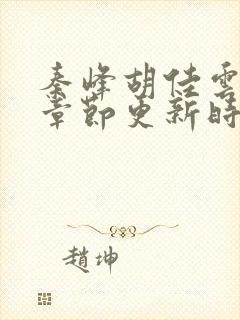 秦峰胡佳雲
章節更新時
趙坤